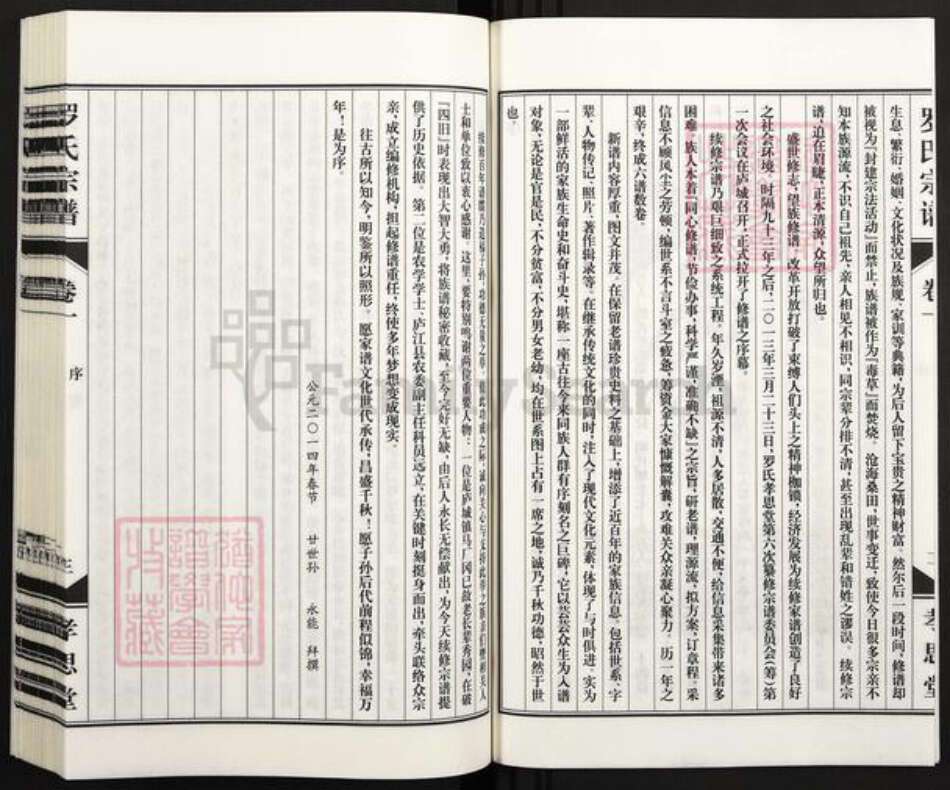 罗氏宗谱
卷一
孝思堂
生息、繁衍、婚姻、文化状况及族规、家训等典籍，为后人留下宝贵之精神财富。然尔后一段时间，修谱却
被视为『封建宗法活动』而禁止，族谱被作为『毒草』而焚烧。沧海桑田，世事变迁，致使今日很多宗亲不
知本族源流，不识自己祖先，亲人相见不相识，同宗辈分排不清，甚至出现乱辈和错姓之谬误。续修宗
谱，迫在眉睫，正本清源，众望所归也。
盛世修志，望族修谱。改革开放打破了束缚人们头上之精神枷锁，经济发展为续修家谱创造了良好
之社会环境。时隔九十三年之后，二〇一三年三月二十三日，罗氏孝思堂第六次纂修宗谱委员会（筹）第
一次会议在庐城召开，正式拉开了修谱之序幕。
续修宗谱乃艰巨细致之系统工程。年久岁湮，祖源不清，人多居散，交通不便，给信息采集带来诸多
困难。族人本着『同心修谱，节俭办事，科学严谨，准确不缺』之宗旨，研老谱，理源流，拟方案，订章程。采
信息不顾风尘之劳顿，编世系不言斗室之疲惫，筹资金大家慷慨解囊，攻难关众亲凝心聚力。历一年之
艰辛，终成六谱数卷。
新谱内容厚重，图文并茂。在保留老谱珍贵史料之基础上，增添了近百年的家族信息。包括世系、字
辈、人物传记、照片、著作辑录等。在继承传统文化的同时，注入了现代文化元素，体现了与时俱进。实为
一部鲜活的家族生命史和奋斗史，堪称一座古往今来同族人群有序刻名之巨碑，它以芸芸众生为入谱
对象，无论是官是民，不分贫富，不分男女老幼，均在世系图上占有一席之地，诚乃千秋功德，昭然于世
也。
续修百年谱牒乃造福子孙、功德无量之举。值此功成之际，诚向关心与支持此事之族亲们暨相关人
士和单位致以衷心感谢。这里，要特别鸣谢两位重要人物：一位是庐城镇马厂冈已故老长辈秀园，在破
『四旧』时表现出大智大勇，将族谱秘密收藏，至今完好无缺，由后人永长无偿献出，为今天续修宗谱提
供了历史依据。第二位是农学学士、庐江县农委副主任科员远立，在关键时刻挺身而出，牵头联络众宗
亲，成立编修机构，担起修谱重任，终使多年梦想变成现实。
往古所以知今，明鉴所以照形。愿家谱文化世代承传，昌盛千秋！愿子孙后代前程似锦，幸福万
年！是为序。
公元二〇一四年春节 廿世孙 永能 拜撰
罗氏宗谱
卷一
序
三
孝思堂
FamilySearch